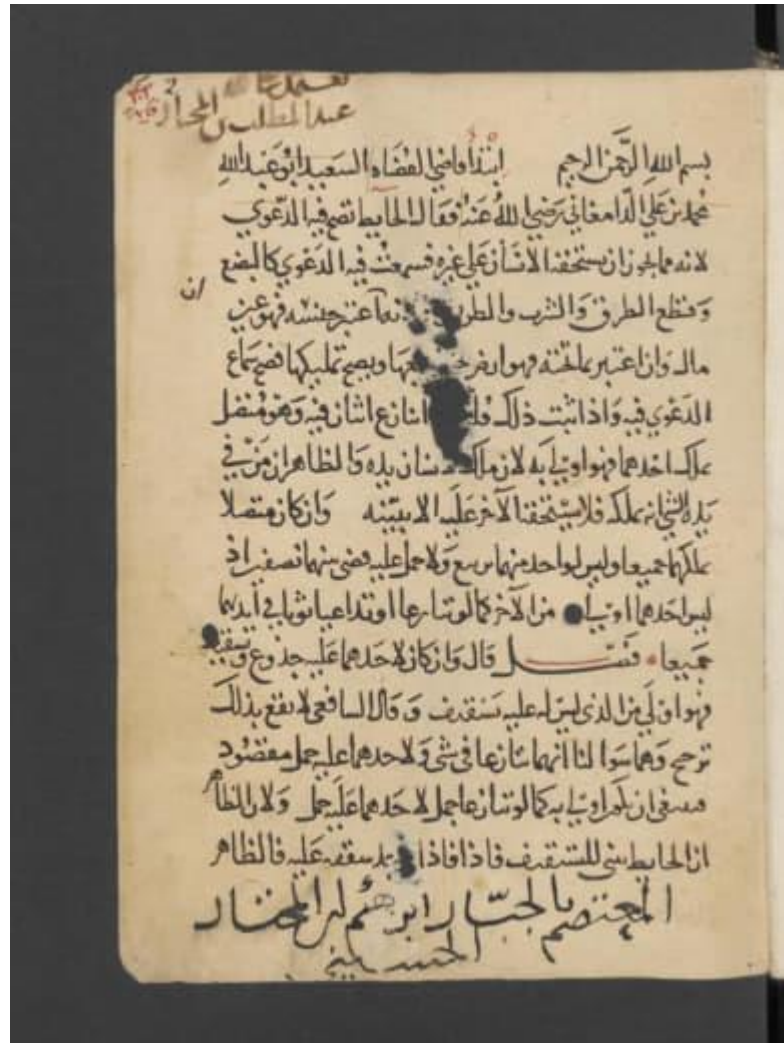 عبد المطلب بن المختار
بسم الله الرحمن الرحيم ابتدا قاضي القضاه السعيد ابو عبد الله
محمد بن علي الدامغاني رضي الله عنه فقال الحايط تصح فيه الدعوي
لانه مما يجوز ان يستحقه الانسان علي غيره فسمعت فيه الدعوي كالبضع
ان
وقطع الطرق والشرب والطريق اعتبر جنسه فهو عين
مال وان اعتبر بما تحته فهو ويصح تمليكها فصح سماع
الدعوي فيه واذا ثبت ذلك تنازع اثنان فيه وهو متصل
بملك احدهما فهو اولي به لان ملك الانسان يده والظاهر ان من في
يده الشي انه يملكه فلا يستحقه الاخر عليه الا ببينه وان كان متصلا
بملكهما جميعا وليس لواحد منهما ولا حمل عليه قضي بينهما نصفين اذ
ليس احدهما اولي من الاخر كما لو تنازعا او تداعيا ثوبا في ايديهما
جميعا فصل قال وان كان لاحدهما عليه جذوع وتسقيف
فهو اولي من الذي ليس له عليه تسقيف وقال الشافعي لا يقع بذلك
ترجيح وهما سوا لنا انهما تنازعا في شي ولاحدهما عليه حمل مقصود
فينبغي ان يكون اولي به كما لو تنازعا جمل لاحدهما عليه حمل ولان الظاهر
ان الحايط يبني للتسقيف فاذا سقفه عليه فالظاهر
المعتصم بالجبار ابرهيم بن المختار
الحسيني